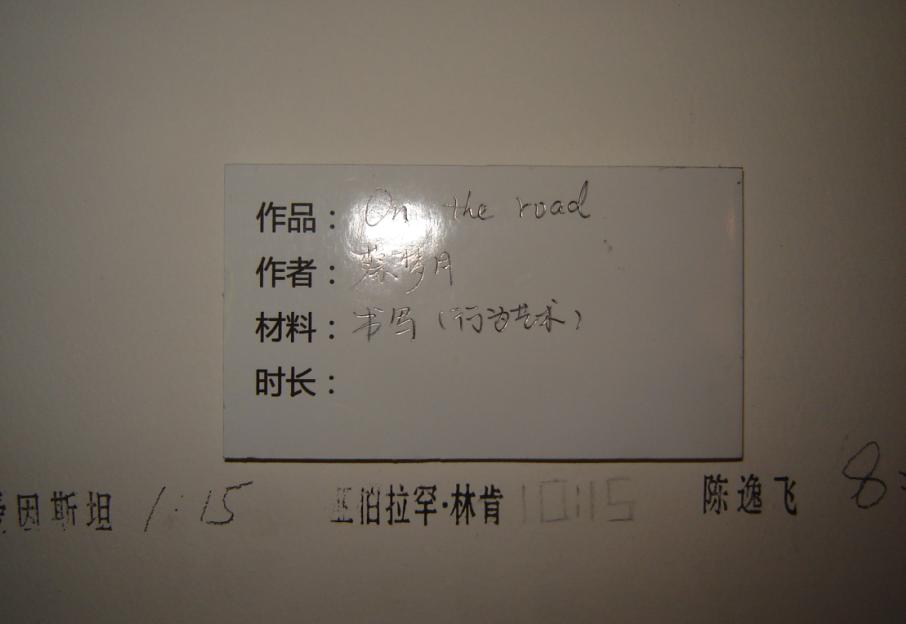 作品：On the road
作者：蔡梦月
材料：书写（行为艺术）
时长：
因斯坦 1:15 亚伯拉罕·林肯 10:15 陈逸飞 8